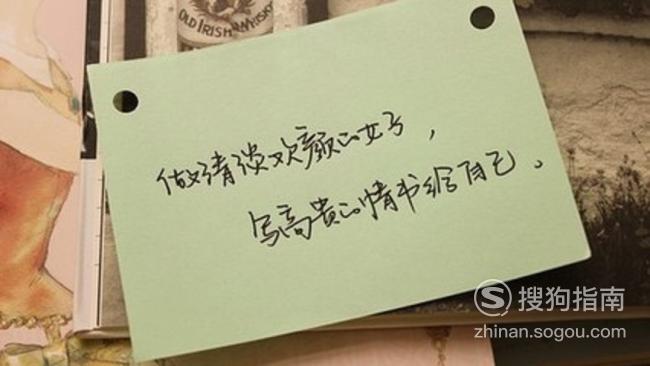 OLD IRISH WHISKY
做清淡欢颜的女子，
写高贵的情书给自己。
搜狗指南
zhinan.sogou.com